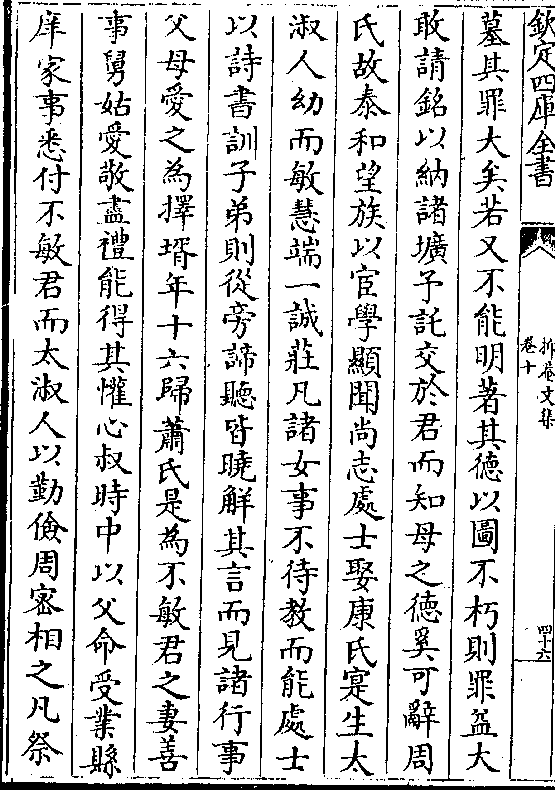 欽定四庫全書
抑菴文集
卷十
四十六
墓其罪大矣若又不能明著其德以圖不朽則罪益大
敢請銘以納諸壙予託交於君而知母之德奚可辭周
氏故泰和望族以宦學顯聞尚志處士娶康氏寔生太
淑人幼而敏慧端一誠莊凡諸女事不待教而能處士
以詩書訓子弟則從旁諦聽皆曉解其言而見諸行事
父母愛之為擇壻年十六歸蕭氏是為不敏君之妻善
事舅姑愛敬盡禮能得其懽心叔時中以父命受業縣
庠家事悉付不敏君而太淑人以勤儉周宻相之凡祭